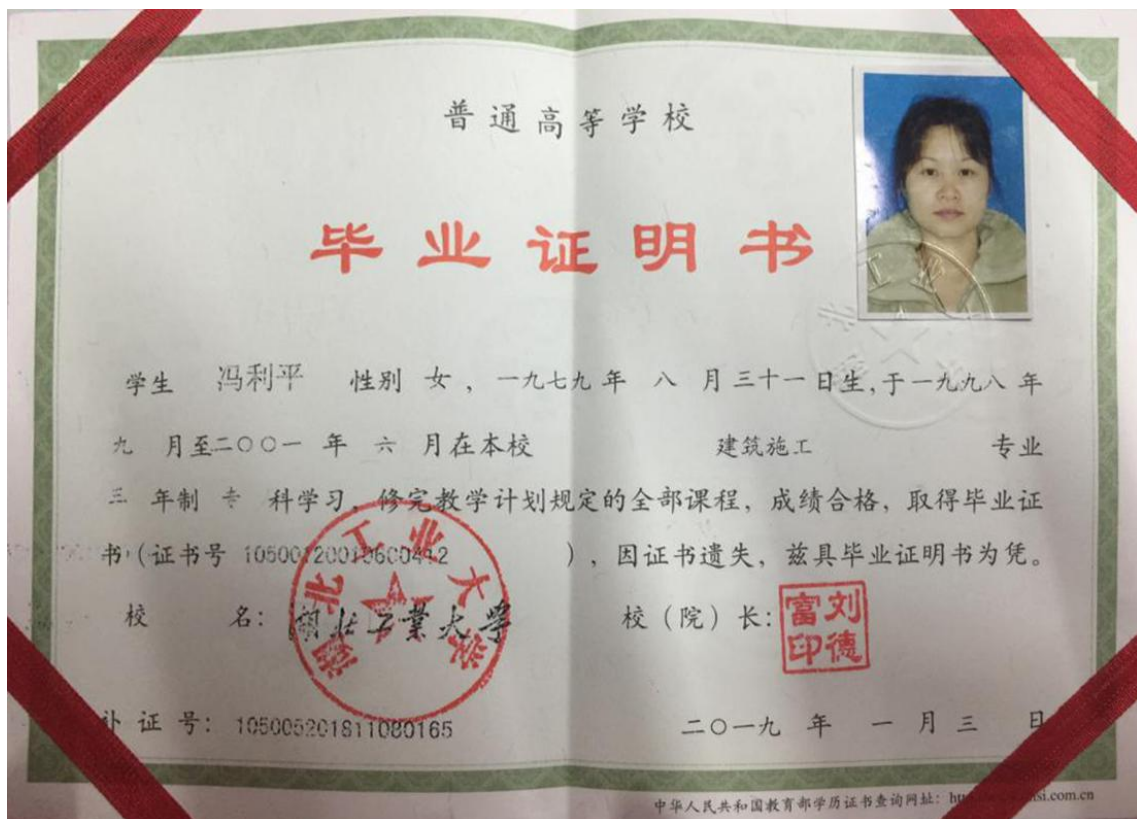 普通高等学校
毕业证明书
学生 冯利平 性别 女，一九七九年 八 月三十一日生，于一九九八 年
九 月至二〇〇一 年 六 月在本校 建筑施工 专业
三 年制 专 科学习，修完教学计划规定的全部课程，成绩合格，取得毕业证
书(证书号 105001200106600442 )，因证书遗失，兹具毕业证明书为凭。
校 名： 湖北工业大学 校（院）长：
湖北工业大学
刘德富印
补 证 号： 105005201811080165 二〇一九 年 一 月 三 日
中华人民共和国教育部学历证书查询网址：
si.com.cn